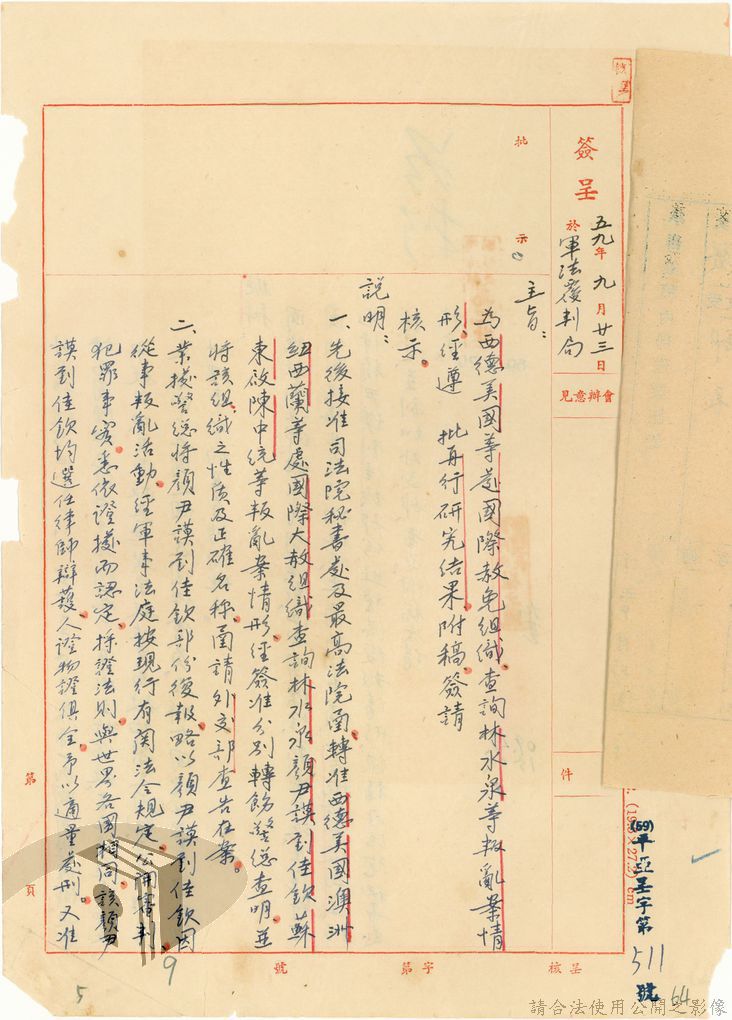 簽呈
五九年九月廿三日
於軍法覆判局
會辦意見
件
批示
主旨：
為西德美國等處國際赦免組織查詢林水泉等叛亂案情
形，經遵 批再行研究結果，附稿簽請
核示。
說明：
一、先後接准司法院秘書處及最高法院函轉准西德美國澳洲
紐西蘭等處國際大赦組織查詢林水泉顏尹謨劉佳欽蘇
東啟陳中統等叛亂案情形經簽准分別轉飭警總查明並
將該組織之性質及正確名稱，函請外交部查告在案。
二、業據警總將顏尹謨劉佳欽部份復報略以顏尹謨劉佳欽因
從事叛亂活動，經軍事法庭按現行有關法令規定，公開審判，
犯罪事實悉依證據而認定，採證法則與世界各國相同，該顏尹
謨劉佳欽均選任律師辯護，人證物證俱全，予以適量處刑。又准
第 頁
呈核 字第 號
(59)平亞呈字第511號
64
9
5
(19.3×27.2) cm
請合法使用公開之影像